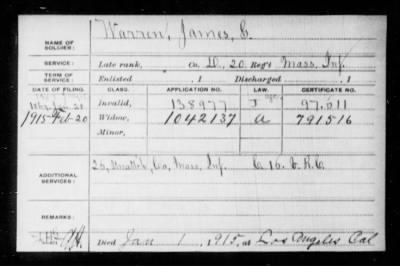 NAME OF SOLDIER: Warren, James, C.
SERVICE: Late rank, Co. D, 20 Reg't Mass. Inf.
TERM OF SERVICE: Enlisted , 1 Discharged , 1
DATE OF FILING. CLASS. APPLICATION NO. LAW. CERTIFICATE NO.
Invalid, 138977 97.011
1915 Feb-20 Widow, 1042137 a 791516
Minor,
ADDITIONAL SERVICES: 25, Co, Mass, Inf. C. 16. V. R. C.
REMARKS:
Died Jan 1, 1915, at Los Angeles Cal